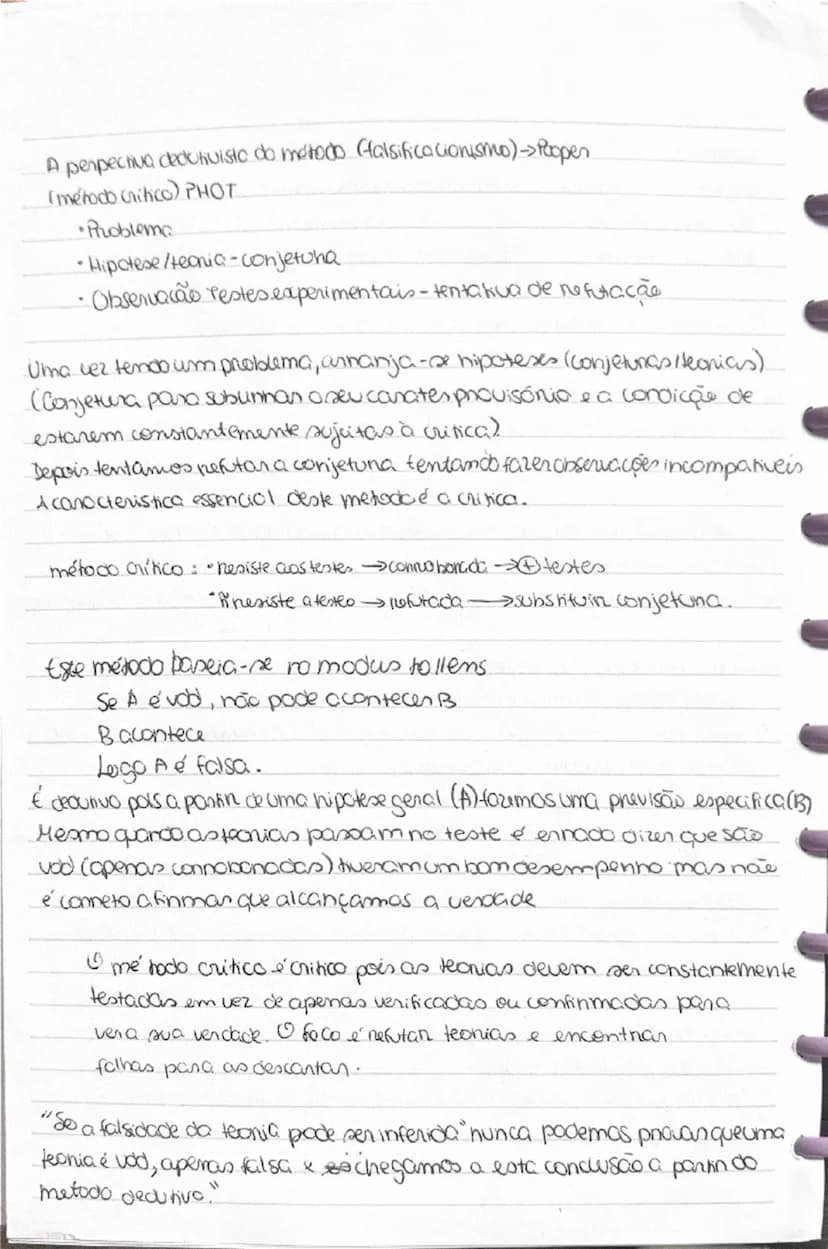 A perspectiva dedutivista do método (falsificacionismo)→Popper
(método crítico) PHOT
•Problema
•Hipotese/teoria-conjetura
• Observação Testes experimentais-tentativa de refutação
Uma vez tendo um problema, arranja-se hipoteses (conjeturas/teorias)
(Conjetura para sublinhar o seu carater provisório e a condicção de
estarem constantemente sujeitas à critica)
Depois tentamos refutar a conjetura tentando fazer observações incompativeis
A caracteristica essencial deste metodo é a critica.
método crítico : •resiste aos testes →corroborada →⊕ testes
• resiste a testes →refutada →substituir conjetura.
Este método baseia-se no modus tollens
Se A é vdd, não pode acontecer B
B acontece
Logo A é falsa.
É dedutivo pois a partir de uma hipotese geral (A) fazemos uma previsão especifica (B)
Mesmo quando as teorias passam no teste é errado dizer que são
vdd (apenas corroboradas) tiveram um bom desempenho mas não
é correto afirmar que alcançamos a verdade
O método critico é critico pois as teorias devem ser constantemente
testadas em vez de apenas verificadas ou confirmadas para
ver a sua verdade. O foco é refutar teorias e encontrar
falhas para as descartar.
"Se a falsidade da teoria pode ser inferida" nunca podemos provar que uma
teoria é vdd, apenas falsa e chegamos a esta conclusão a partir do
metodo dedutivo."